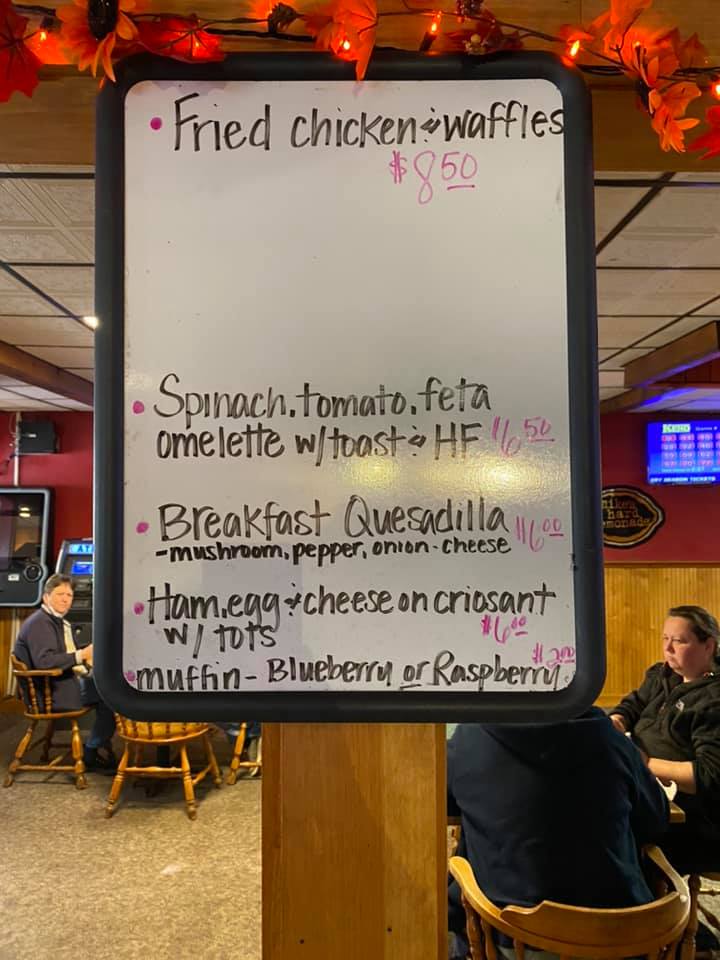 • Fried chicken & waffles
$8.50
• Spinach, tomato, feta
omelette w/toast & HF $6.50
• Breakfast Quesadilla $6.00
-mushroom, pepper, onion - cheese
• Ham, egg & cheese on criosant
w/ tots $6.00
• muffin - Blueberry or Raspberry $2.00
KENO
hard